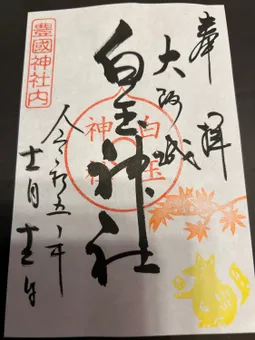 奉拝
大阪城
白玉神社
白玉
神社
令和五年
十一月
豊國神社内